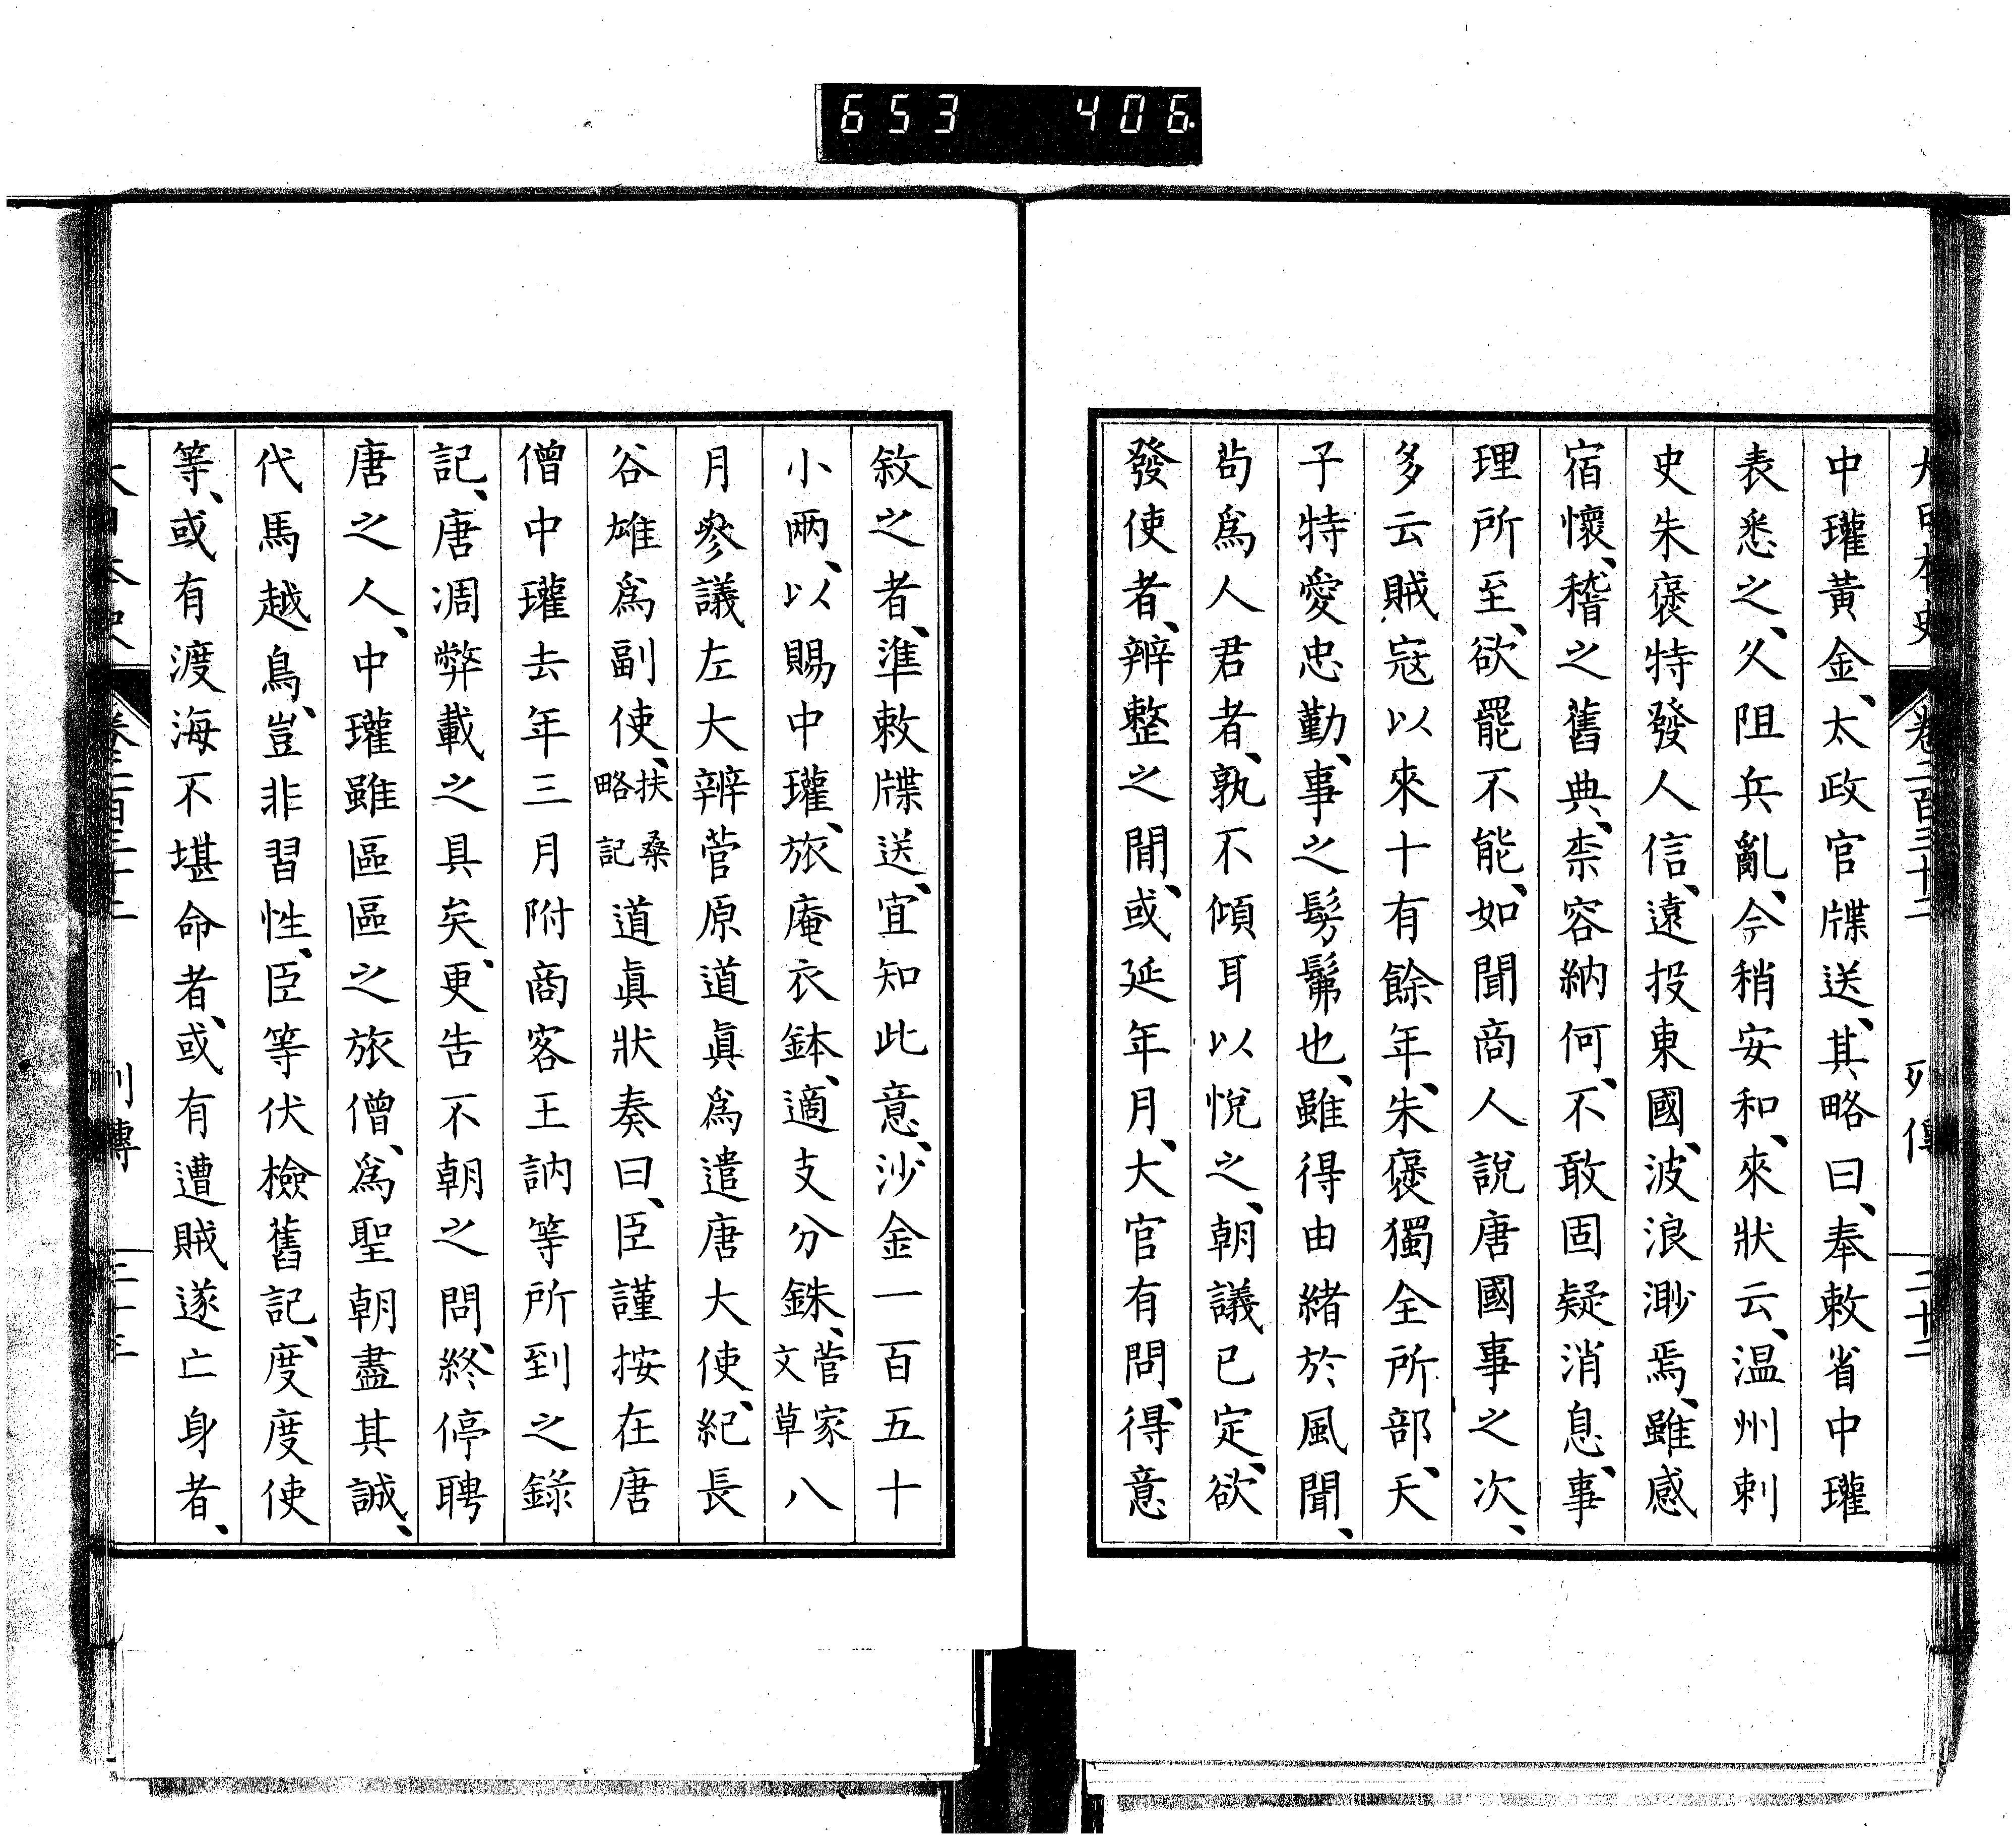 653 406.
大日本史 卷二百三十二 列傳 三十二
中瓘黃金、太政官牒送、其略曰、奉敕省中瓘
表悉之、久阻兵亂、今稍安和、來狀云、温州刺
史朱褒特發人信、遠投東國、波浪渺焉、雖感
宿懷、稽之舊典、柰容納何、不敢固疑消息、事
理所至、欲罷不能、如聞商人說唐國事之次、
多云賊寇以來十有餘年、朱褒獨全所部、天
子特愛忠勤、事之髣髴也、雖得由緒於風聞、
茍爲人君者、孰不傾耳以悅之、朝議已定、欲
發使者、辨整之閒、或延年月、大官有問、得意
敘之者、準敕牒送、宜知此意、沙金一百五十
小兩、以賜中瓘、旅庵衣鉢、適支分銖、菅家文草八
月參議左大辨菅原道眞爲遣唐大使、紀長
谷雄爲副使、扶桑略記道眞狀奏曰、臣謹按在唐
僧中瓘去年三月附商客王訥等所到之錄
記、唐凋弊載之具矣、更告不朝之問、終停聘
唐之人、中瓘雖區區之旅僧、爲聖朝盡其誠、
代馬越鳥、豈非習性、臣等伏檢舊記、度度使
等、或有渡海不堪命者、或有遭賊遂亡身者、
大日本史 卷二百三十二 列傳